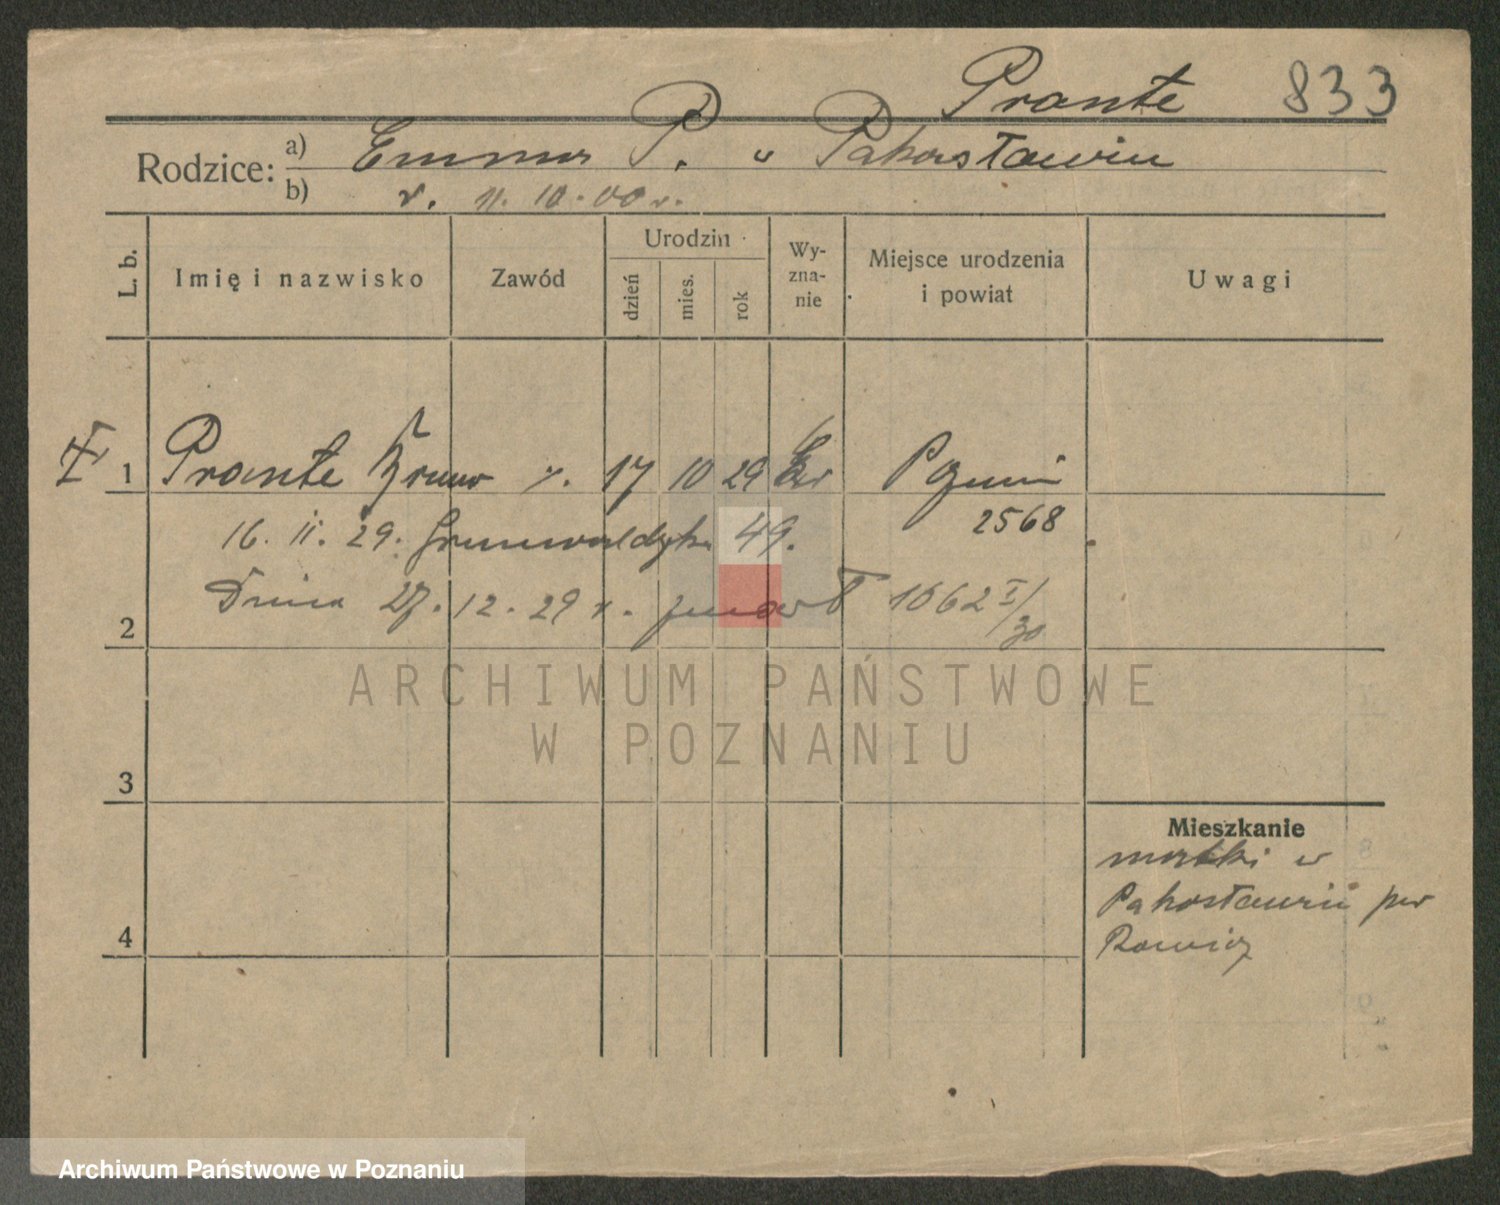 Prante 833
Rodzice: a) Emma P. w Pakosławiu
b) r. 11. 10. 00 r.
L. b.
Imię i nazwisko
Zawód
Urodzin
dzień
mies.
rok
Wy-
zna-
nie
Miejsce urodzenia
i powiat
Uwagi
1 Prante Bruno r. 17 10 29 Ew Poznań
16. 11. 29. Grunwaldzka 49. 2568
Dnia 27. 12. 29 r. zmarł 1662 I/30
2
ARCHIWUM PAŃSTWOWE
W POZNANIU
3
Mieszkanie
matki w
Pakosławiu pow
Rawicz
4
Archiwum Państwowe w Poznaniu